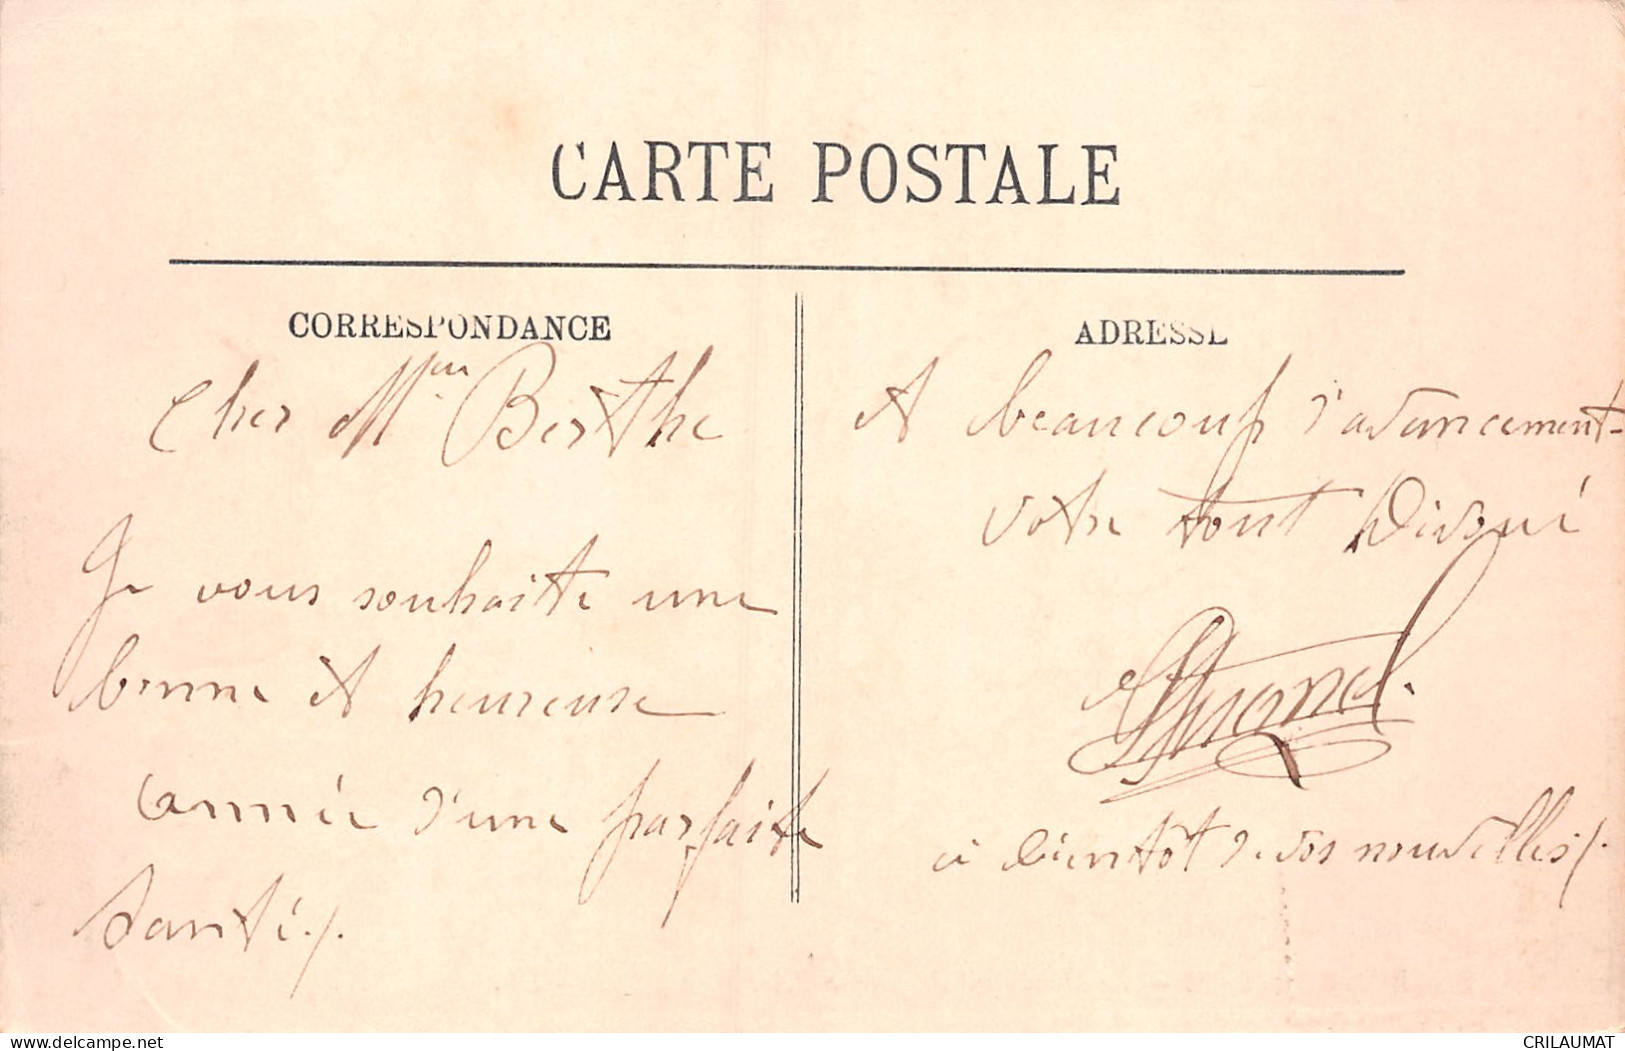 CARTE POSTALE
CORRESPONDANCE
Cher Mr Berthe
Je vous souhaite une
bonne et heureuse
année d'une parfaite
santé ./.
ADRESSE
et beaucoup d'avancement
votre tout Dévoué
à bientôt de vos nouvelles /.
delcampe.net
CRILAUMAT